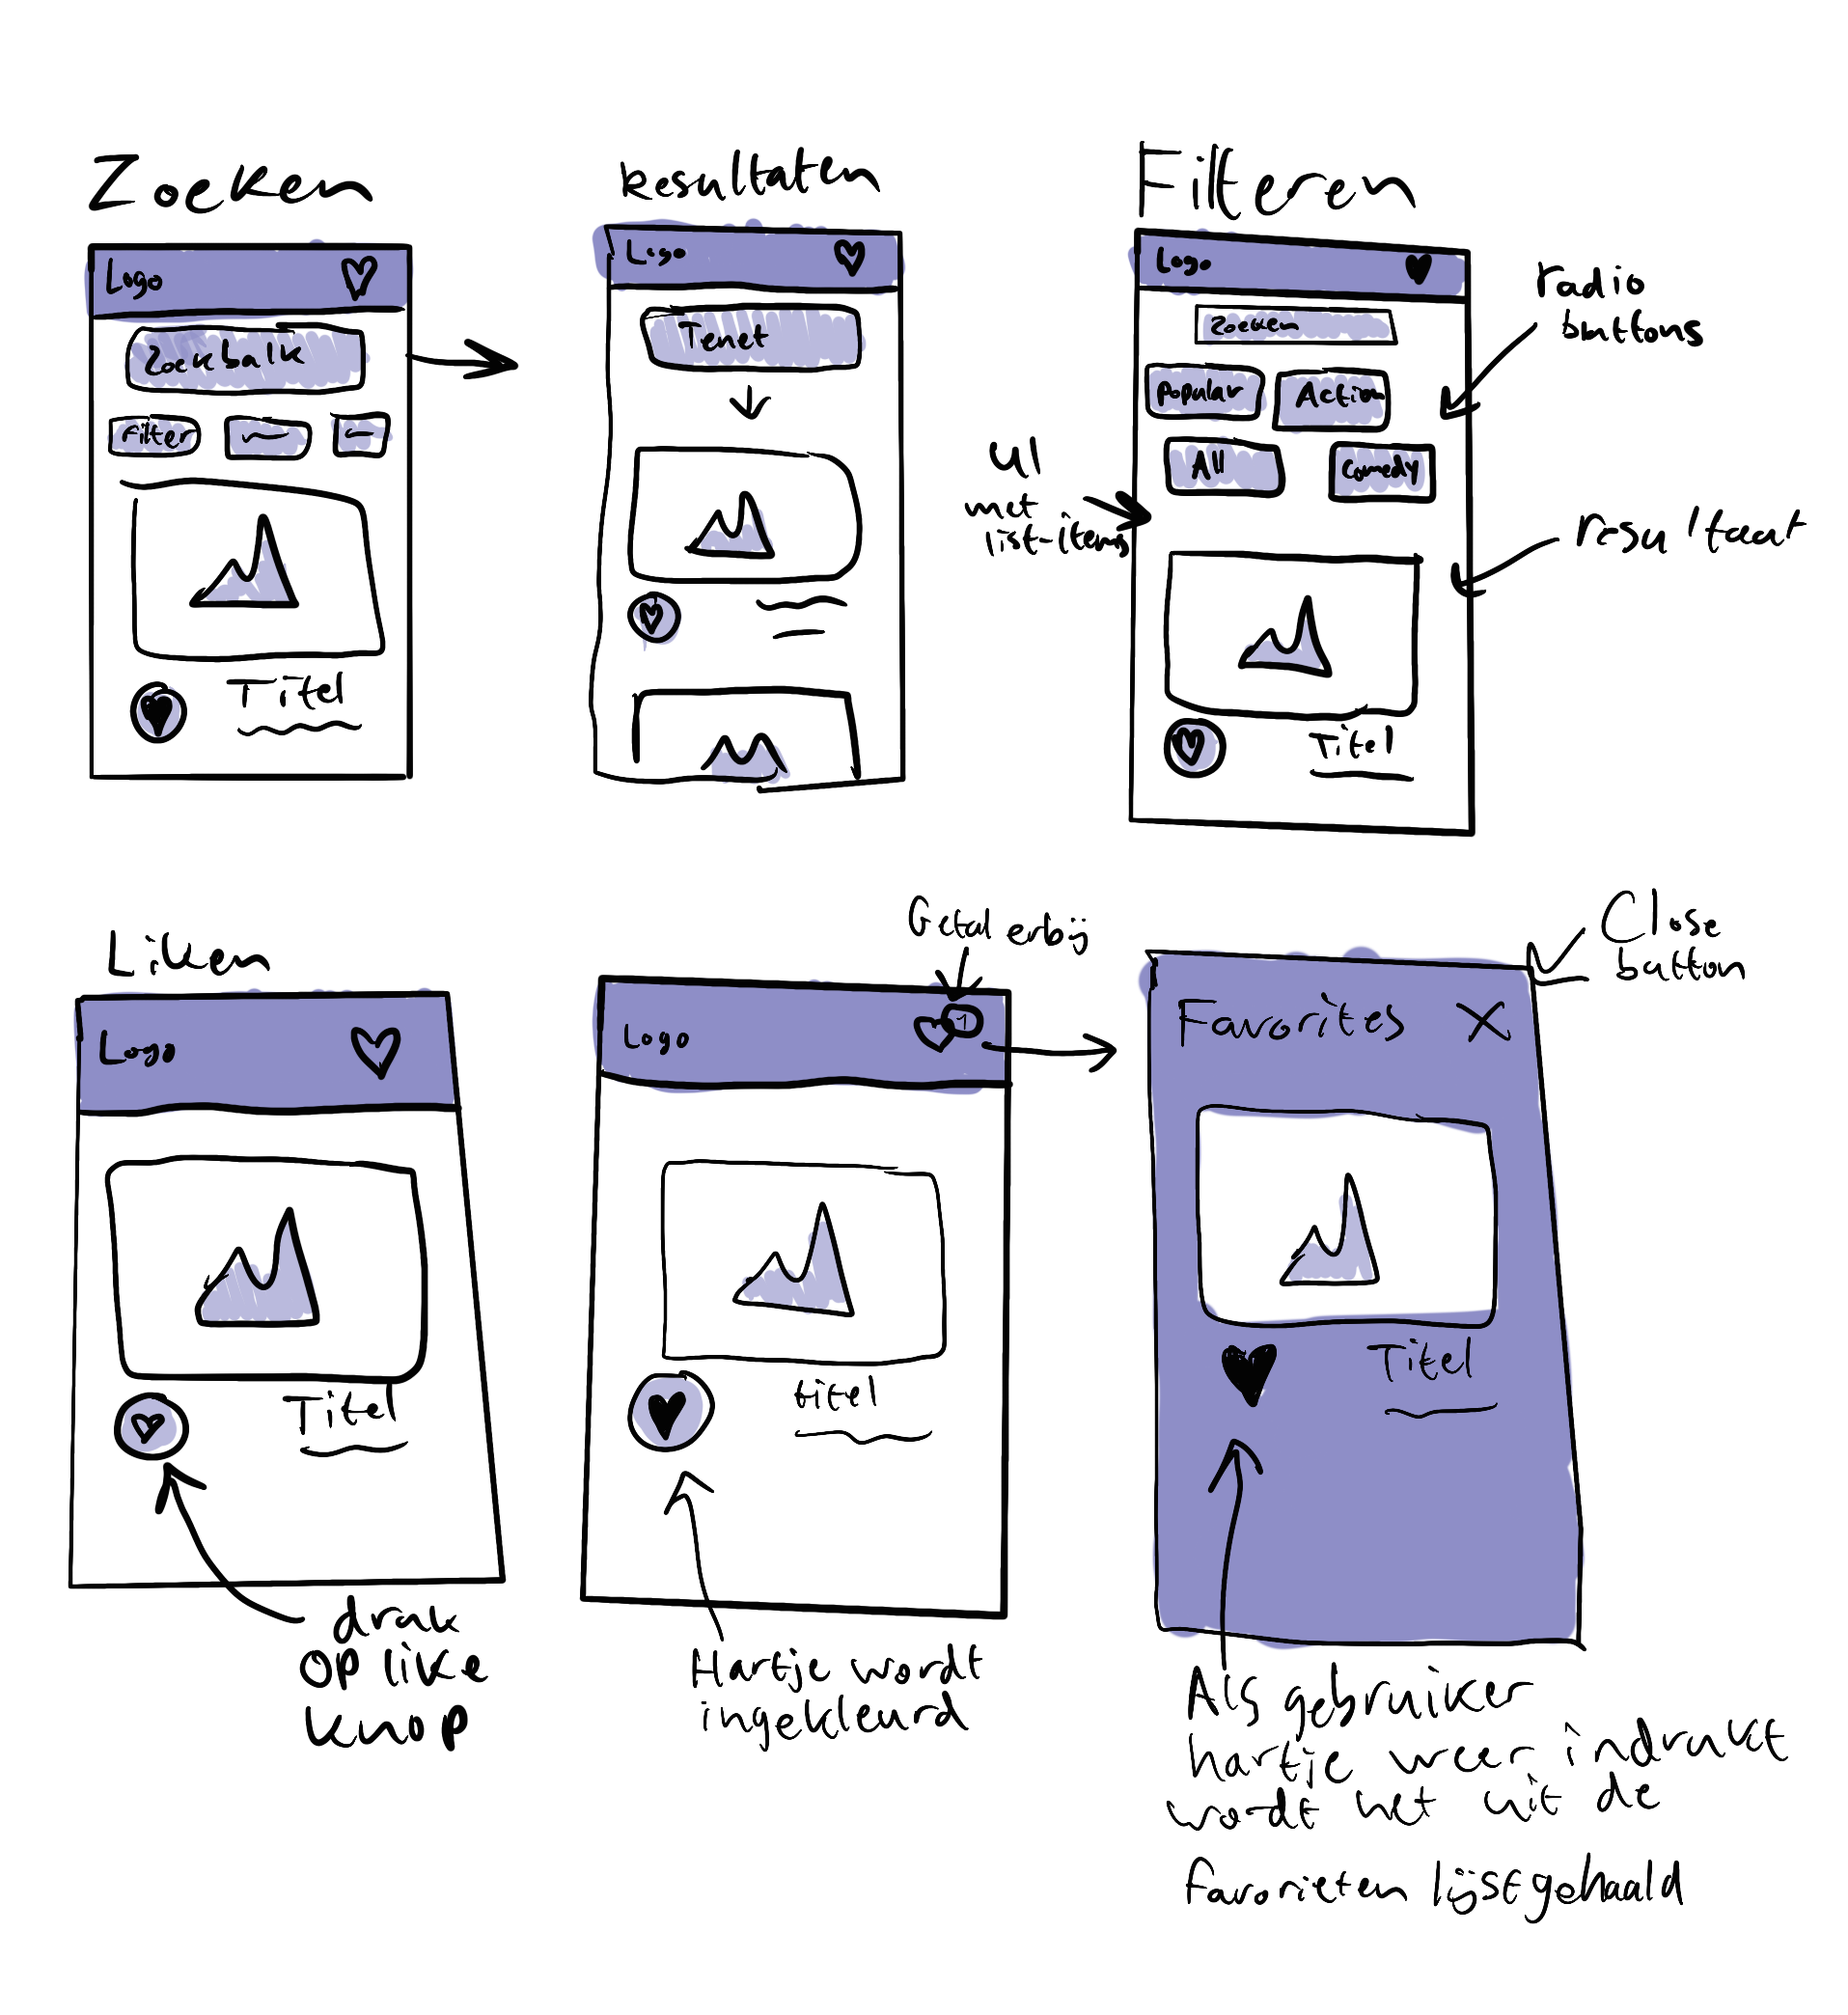 Zoeken
Logo
Zoekbalk
Filter
Titel
Resultaten
Logo
Tenet
Filteren
Logo
Zoeken
Popular
Action
All
Comedy
Titel
radio
buttons
ul
met
list-items
resultaat
Liken
Logo
Titel
druk
op like
knop
Getal erbij
Logo
1
titel
Hartje wordt
ingekleurd
Close
button
Favorites X
Titel
Als gebruiker
hartje weer indrukt
wordt het uit de
favorieten lijst gehaald